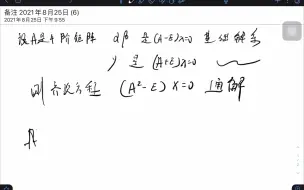 备注 2021年8月25日 (6)
2021年8月25日 下午9:55
设A是4阶矩阵 αβ 是(A-E)X=0 基础解系
γ是 (A+E)X=0
则 齐次方程 (A²-E)X=0 通解